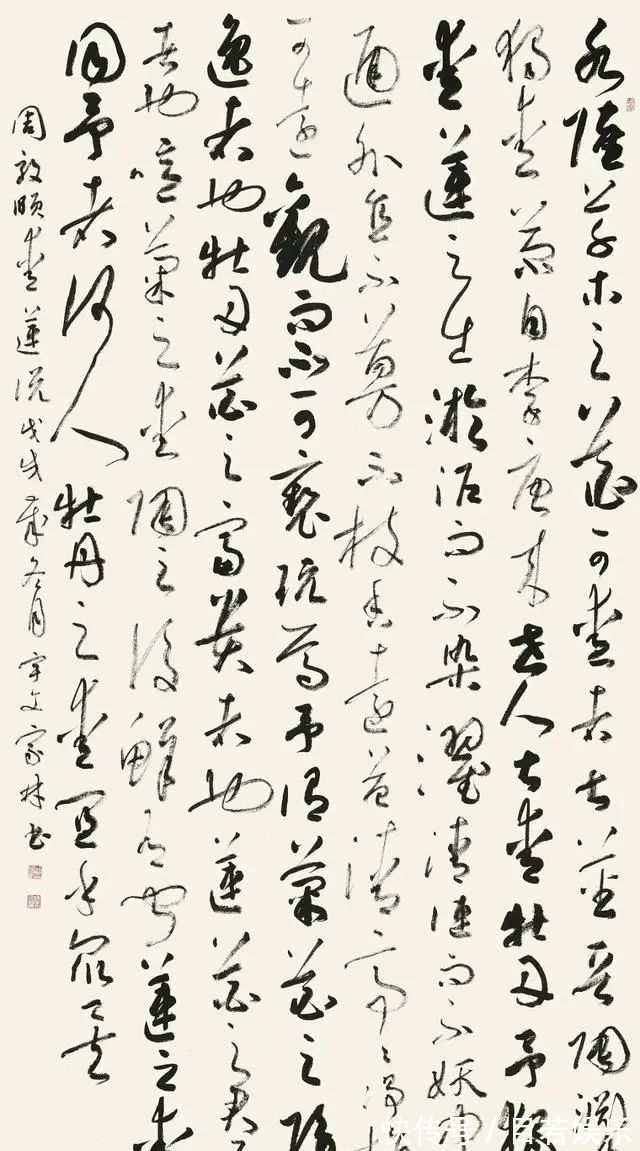 水陸草木之花可愛者甚蕃晉陶淵
獨愛菊自李唐來世人甚愛牡丹予獨
愛蓮之生淤泥而不染濯清漣而不妖中
通外直不蔓不枝香遠益清亭亭淨植
可遠觀而不可褻玩焉予謂菊花之隱
逸者也牡丹花之富貴者也蓮花之君子
者也噫菊之愛陶之後鮮有聞蓮之愛
同予者何人牡丹之愛宜乎眾矣
周敦頤愛蓮說戊戌歲冬月宇文家林書
快传号 / 日若娱乐